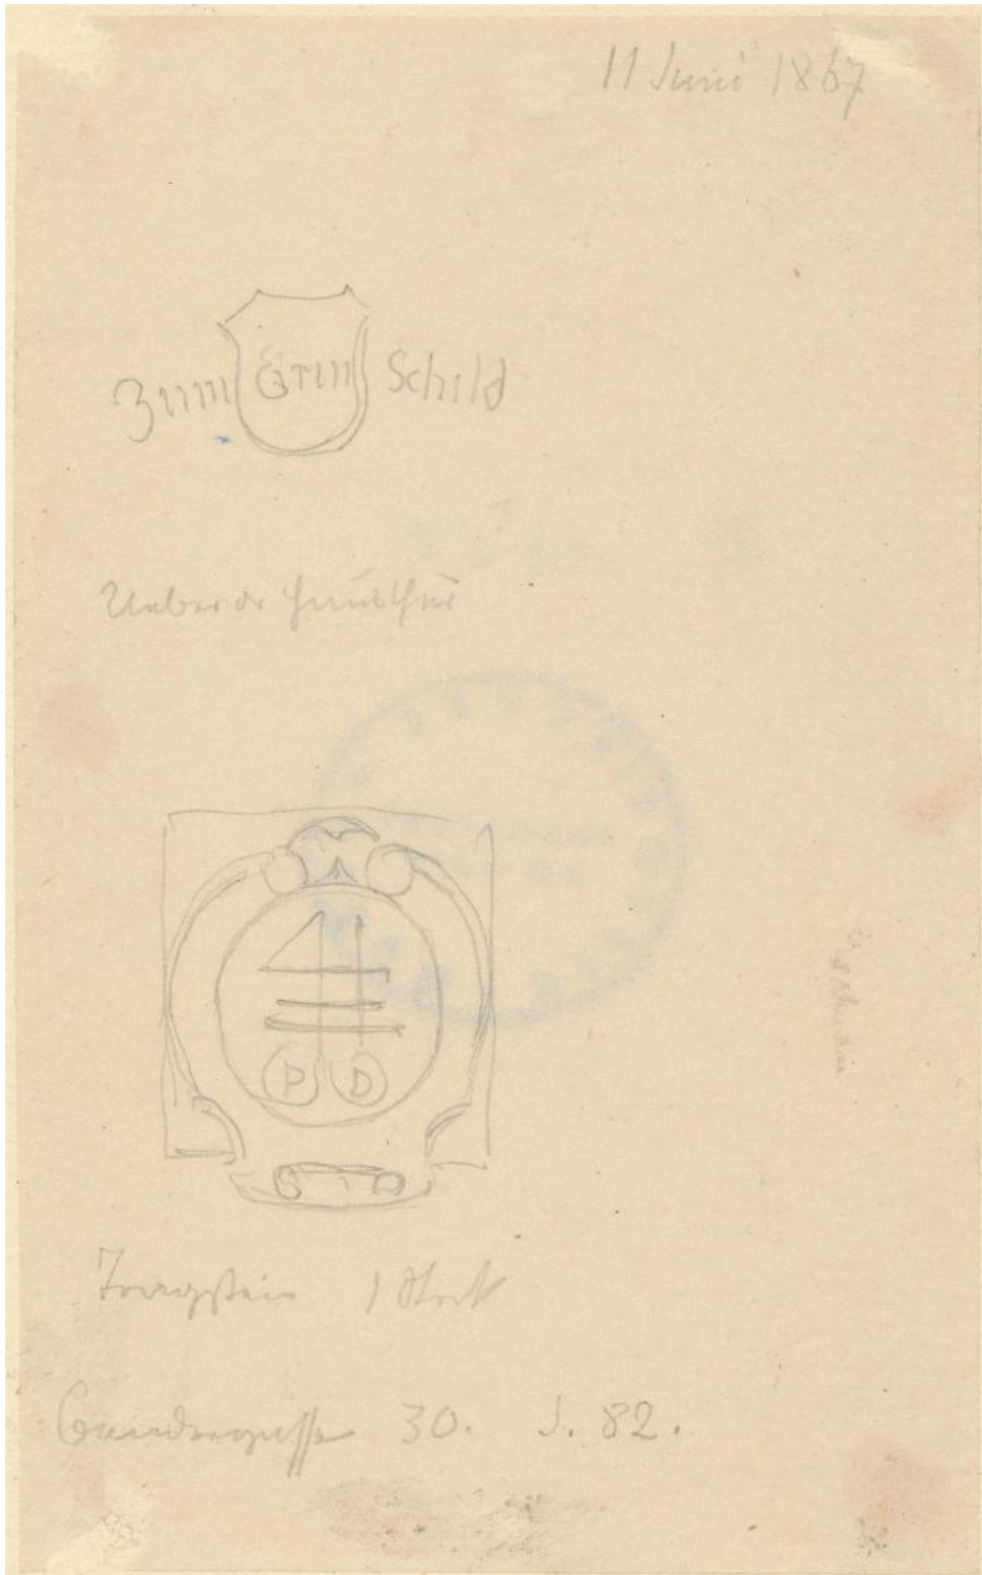 11 Juni 1867
Zum Grün Schild
Ueber der Hausthür
P D
Tragstein 1 Stock
30. J. 82.